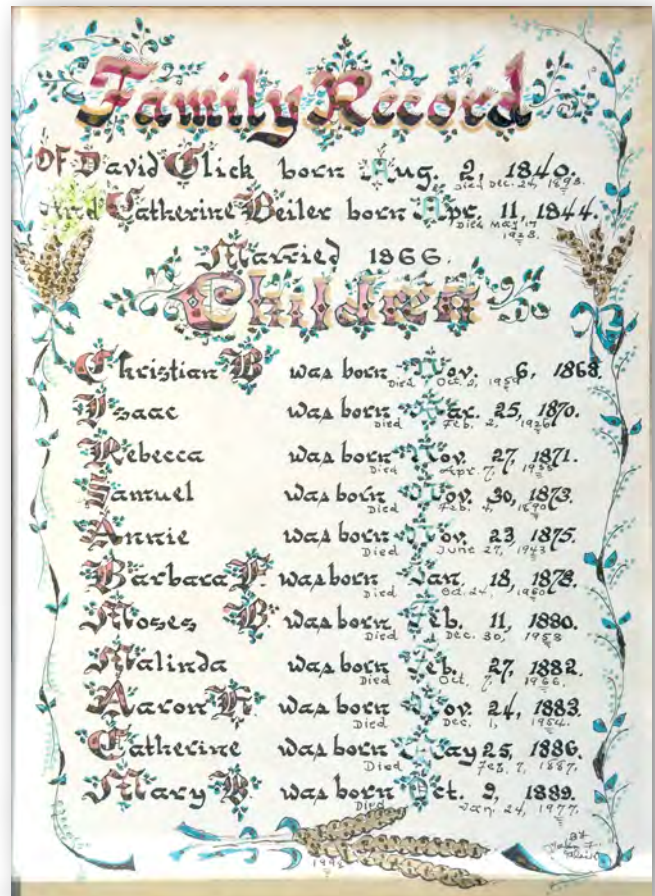 Family Record
OF David Glick born Aug. 2, 1840.
Died Dec. 24, 1898.
And Catherine Beiler born Apr. 11, 1844.
Died May 17
1928.
Married 1866.
Children
Christian B was born Nov. 6, 1868.
Died Oct. 2, 1959
Isaac was born Mar. 25, 1870.
Died Feb. 2, 1926
Rebecca was born Nov. 27, 1871.
Died Apr. 7,
Samuel was born Nov. 30, 1873.
Died Feb. 4, 1890
Annie was born Nov. 23 1875.
Died June 27, 1943
Barbara was born Jan. 18, 1878.
Died Oct. 24, 1950
Moses B. was born Feb. 11, 1880.
Died Dec. 30, 1958
Malinda was born Feb. 27, 1882.
Died Oct. 7, 1966.
Aaron was born Nov. 24, 1883.
Died Dec. 1, 1954.
Catherine was born May 25, 1886.
Died Feb. 7, 1887.
Mary B. was born Oct. 9, 1889.
Died Jan. 24, 1977.
By
John F.